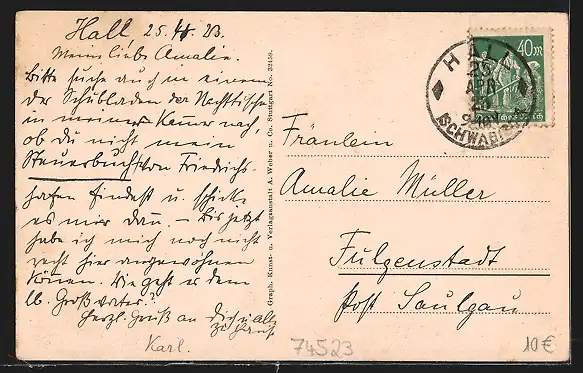 Hall 25. 4. 23.
Meine liebe Amalie.
Bitte suche auch in einem
der Schubladen der Nachttische
in meiner Kammer nach,
ob du nicht mein
Steuerbuch von Friedrichs-
hafen findest u. schicke
es mir dann. – Bis jetzt
habe ich mich noch nicht
recht hier angewöhnen
können. Wie geht es dem
lb. Großvater?
Herzl. Gruß an Dich u. alle
zu Haus
Karl.
Graph. Kunst- u. Verlagsanstalt A. Weber u. Co. Stuttgart No. 32459.
40 m
HALL
25
APR
SCHWÄBISCH
Fräulein
Amalie Müller
Fulgenstadt
Post Saulgau
74523
10 €